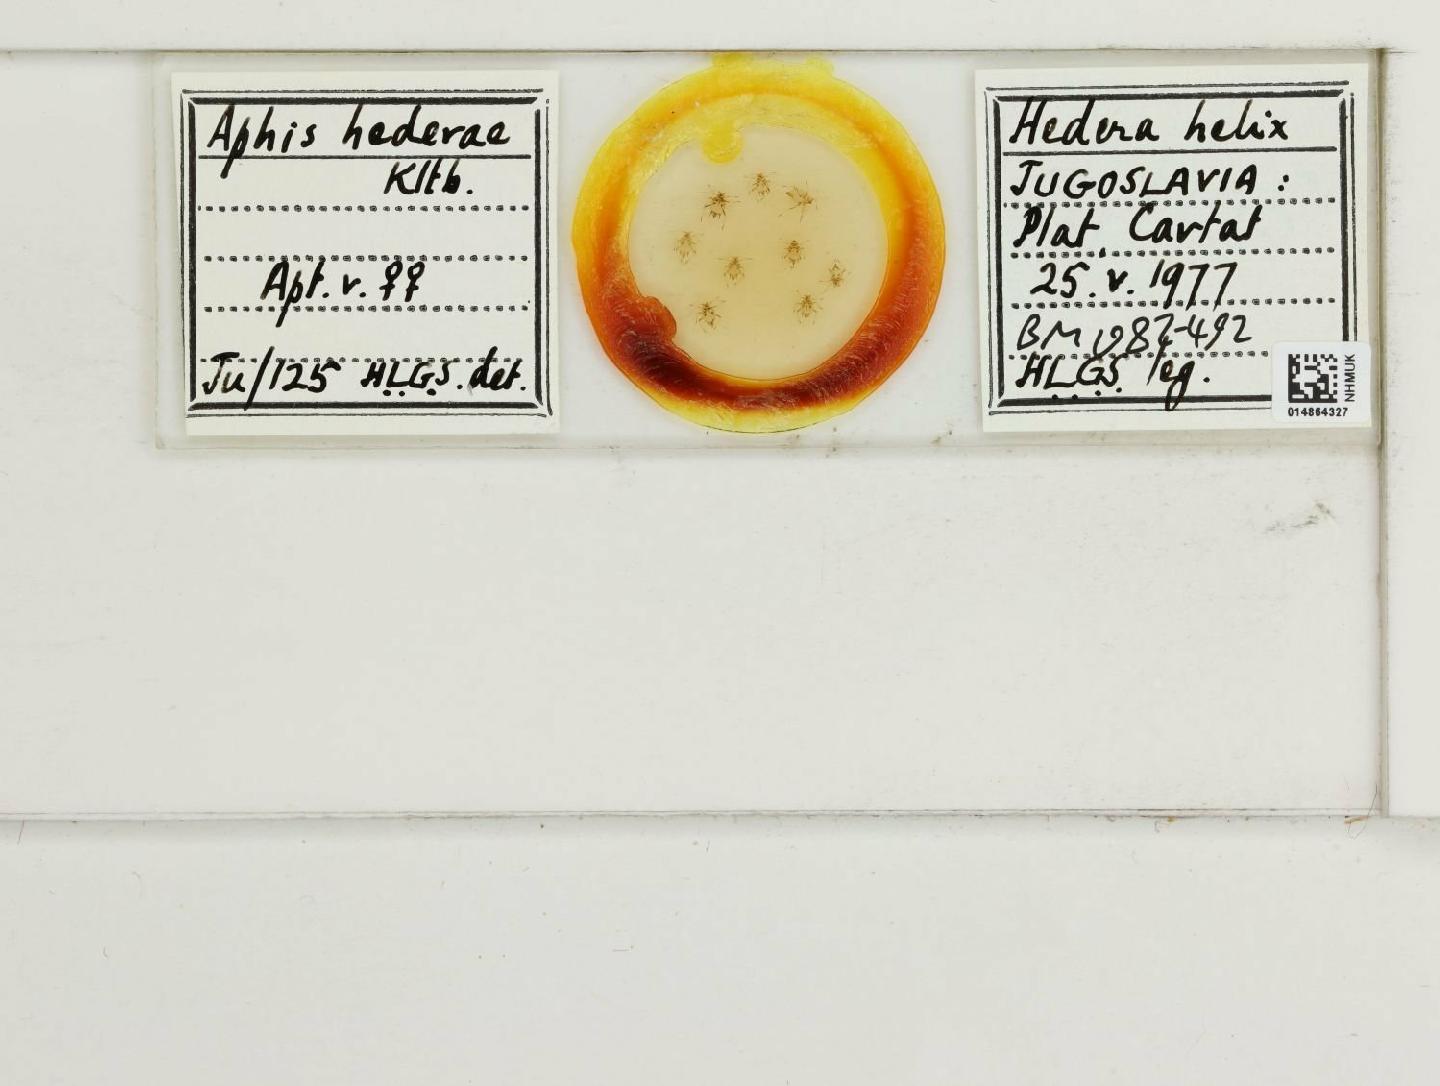 Aphis hederae
Kltb.
Apt. v. ♀♀
Ju/125 H.L.G.S. det.
Hedera helix
JUGOSLAVIA :
Plat, Cavtat
25. v. 1977
BM 1982-492
H.L.G.S. leg.
NHMUK
014864327